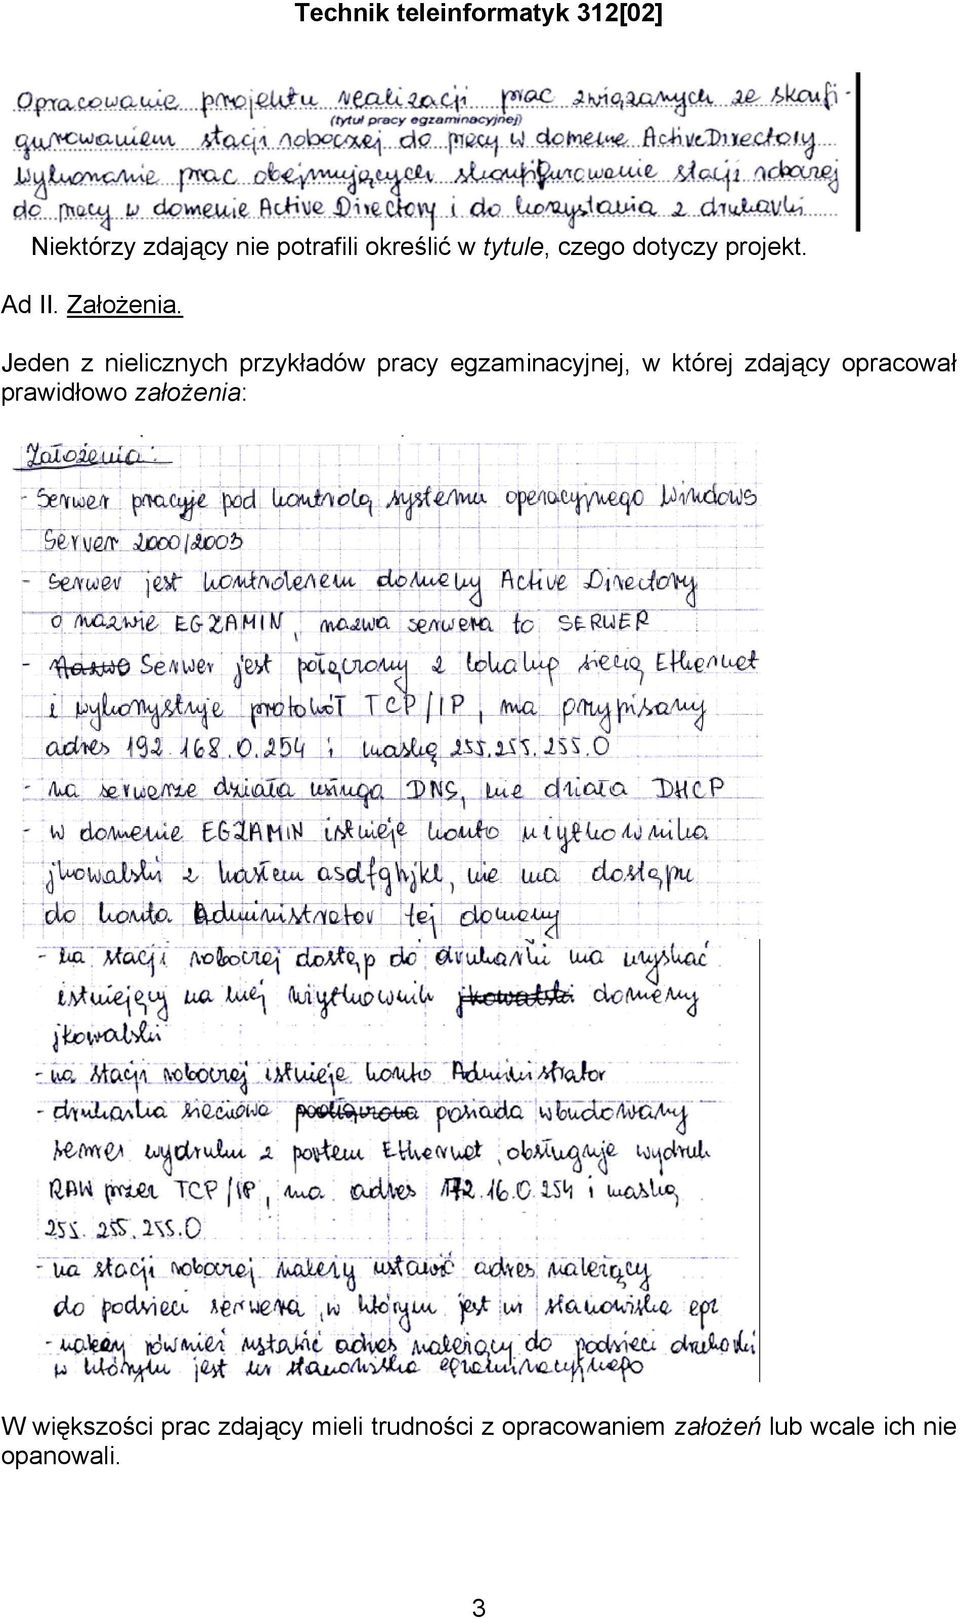 Technik teleinformatyk 312[02]
Opracowanie projektu realizacji prac związanych ze skonfi-
(tytuł pracy egzaminacyjnej)
gurowaniem stacji roboczej do pracy w domenie Active Directory
Wykonanie prac obejmujących skonfigurowanie stacji roboczej
do pracy w domenie Active Directory i do korzystania z drukarki
Niektórzy zdający nie potrafili określić w tytule, czego dotyczy projekt.
Ad II. Założenia.
Jeden z nielicznych przykładów pracy egzaminacyjnej, w której zdający opracował
prawidłowo założenia:
Założenia:
- Serwer pracuje pod kontrolą systemu operacyjnego Windows
Server 2000/2003
- Serwer jest kontrolerem domeny Active Directory
o nazwie EGZAMIN, nazwa serwera to SERWER
- Nazwa Serwer jest połączony z lokalną siecią Ethernet
i wykorzystuje protokół TCP/IP, ma przypisany
adres 192.168.0.254 i maskę 255.255.255.0
- na serwerze działa usługa DNS, nie działa DHCP
- w domenie EGZAMIN istnieje konto użytkownika
jkowalski z hasłem asdfghjkl, nie ma dostępu
do konta Administrator tej domeny
- na stacji roboczej dostęp do drukarki ma uzyskać
istniejący na niej użytkownik jkowalski domemy
jkowalski
- na stacji roboczej istnieje konto Administrator
- drukarka sieciowa posiada wbudowany
serwer wydruku z portem Ethernet, obsługuje wydruk
RAW przez TCP/IP, ma adres 172.16.0.254 i maskę
255.255.255.0
- na stacji roboczej należy ustawić adres należący
do podsieci serwera, w którym jest nr stanowiska egz
- należy również ustawić adres należący do podsieci drukarki
w którym jest nr stanowiska egzaminacyjnego
W większości prac zdający mieli trudności z opracowaniem założeń lub wcale ich nie
opanowali.
3